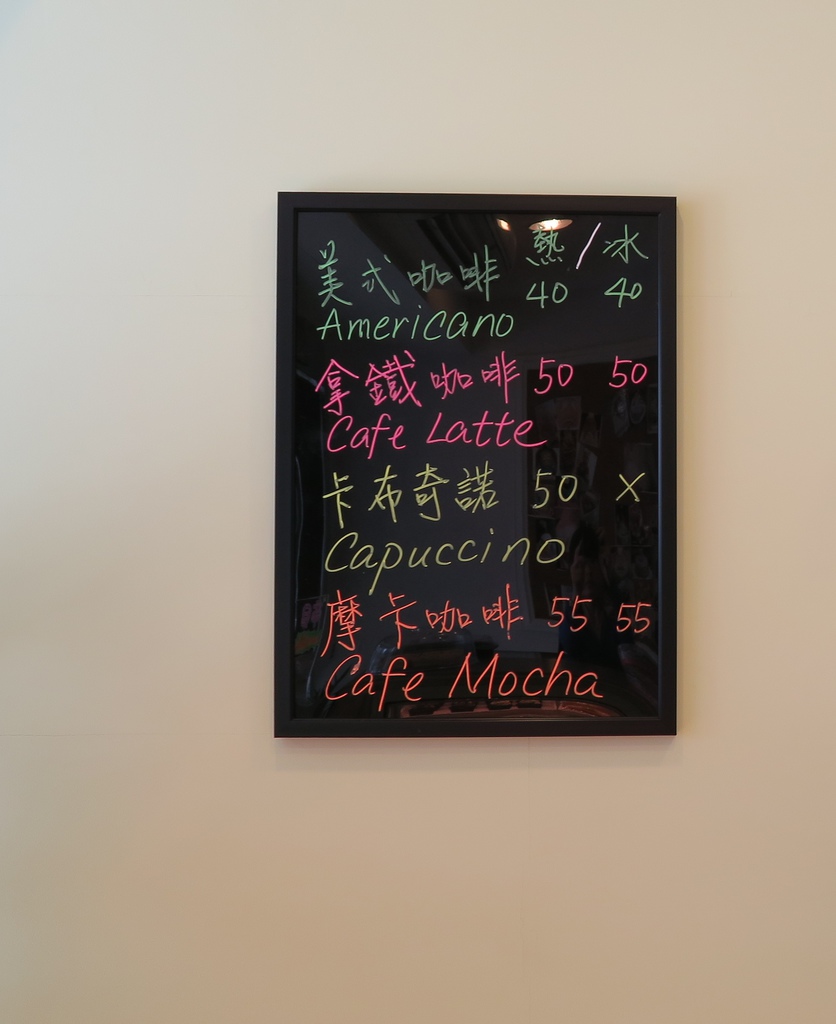 熱/冰
美式咖啡 40 40
Americano
拿鐵咖啡 50 50
Cafe Latte
卡布奇諾 50 X
Capuccino
摩卡咖啡 55 55
Cafe Mocha